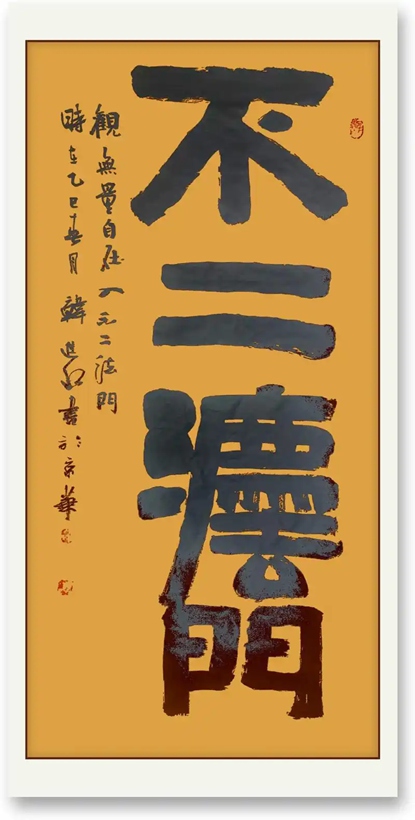 不二灋門
觀無量自在入无二法門
時在乙巳春月韓書於京華